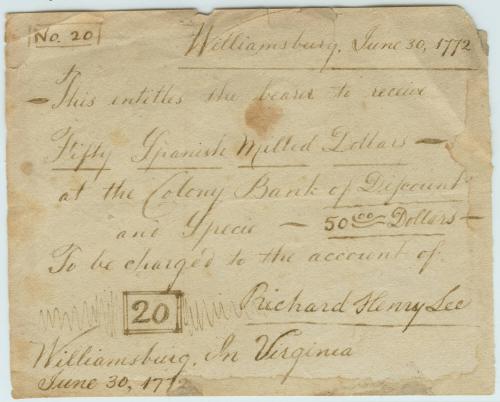 No. 20
Williamsburg, June 30, 1772
This entitles the bearer to receive
Fifty Spanish Milled Dollars
at the Colony Bank of Discount
and Specie — 50 00 Dollars —
To be charged to the account of
20 Richard Henry Lee
Williamsburg, In Virginia
June 30, 1772